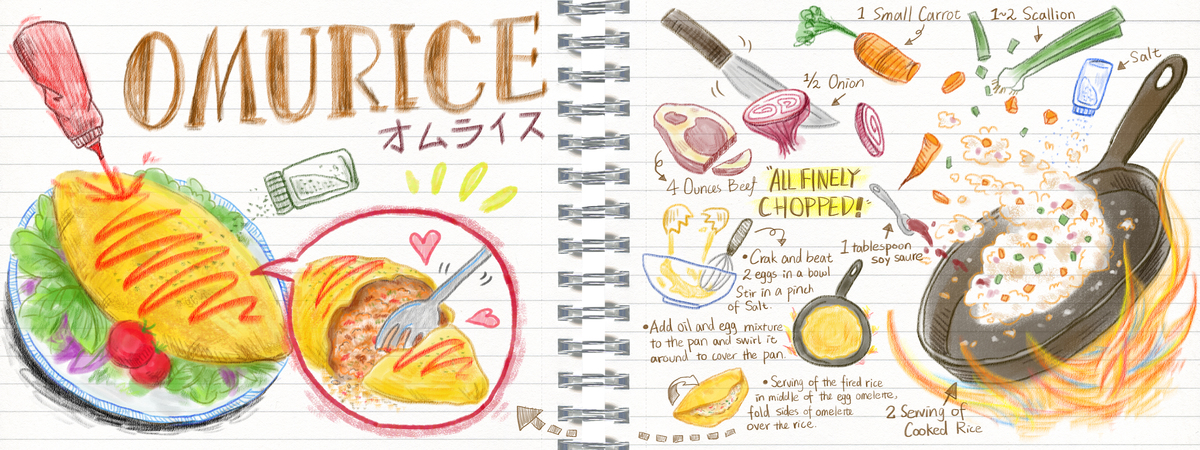 OMURICE
オムライス
1 Small Carrot
1~2 Scallion
Salt
1/2 Onion
4 Ounces Beef
"ALL FINELY
CHOPPED!"
1 tablespoon
soy saure
•Crak and beat
2 eggs in a bowl
Stir in a pinch
of Salt.
•Add oil and egg mixture
to the pan and swirl it
around to cover the pan.
•Serving of the fired rice
in middle of the egg omelette,
fold sides of omelette
over the rice.
2 Serving of
Cooked Rice